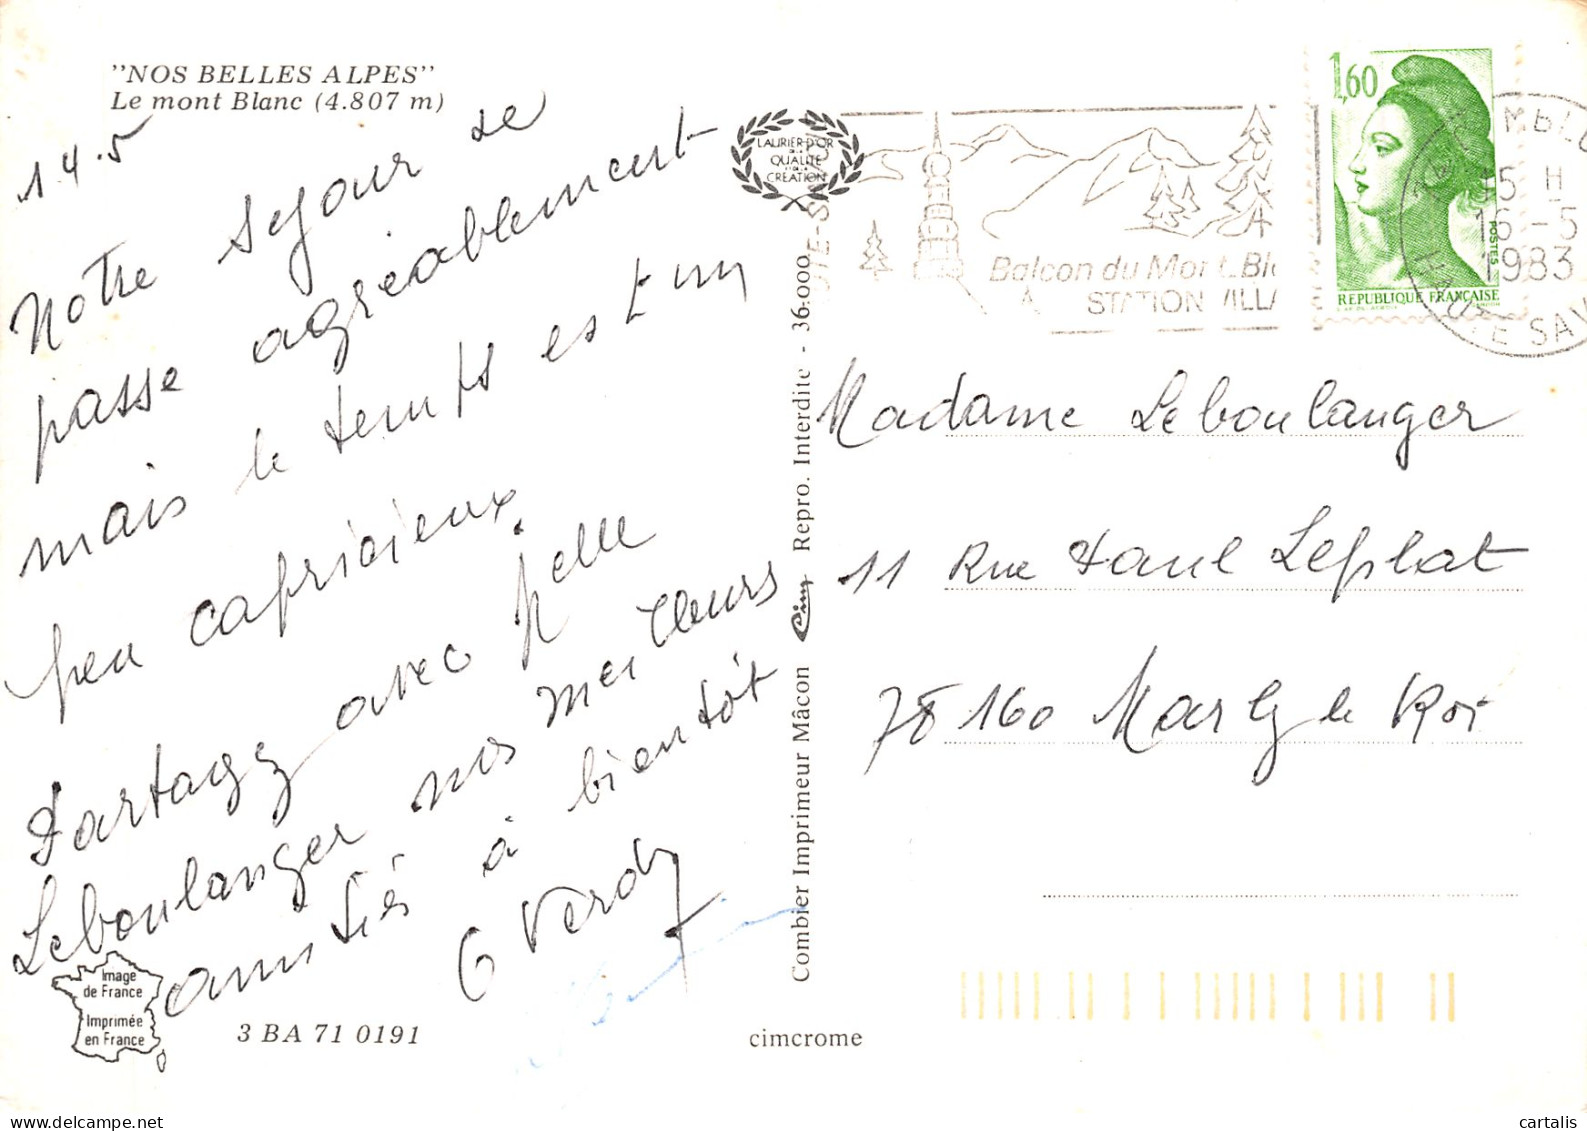 "NOS BELLES ALPES"
Le mont Blanc (4.807 m)
14.5
Notre séjour se
passe agréablement
mais le temps est un
peu capricieux
Partagez avec
Leboulanger nos meilleurs
amitiés à bientôt
G Verdy
Image
de France
Imprimée
en France
3 BA 71 0191
cimcrome
LAURIER D'OR
DE LA
QUALITÉ
ET DE LA
CRÉATION
Combier Imprimeur Mâcon Cim Repro. Interdite - 36.000
Balcon du Mont Bl
STATION VILLA
1,60
POSTES
REPUBLIQUE FRANÇAISE
15 H
16 - 5
1983
HAUTE SAV
Madame Leboulanger
11 Rue Paul Leplat
78160 Marly le Roi
cartalis